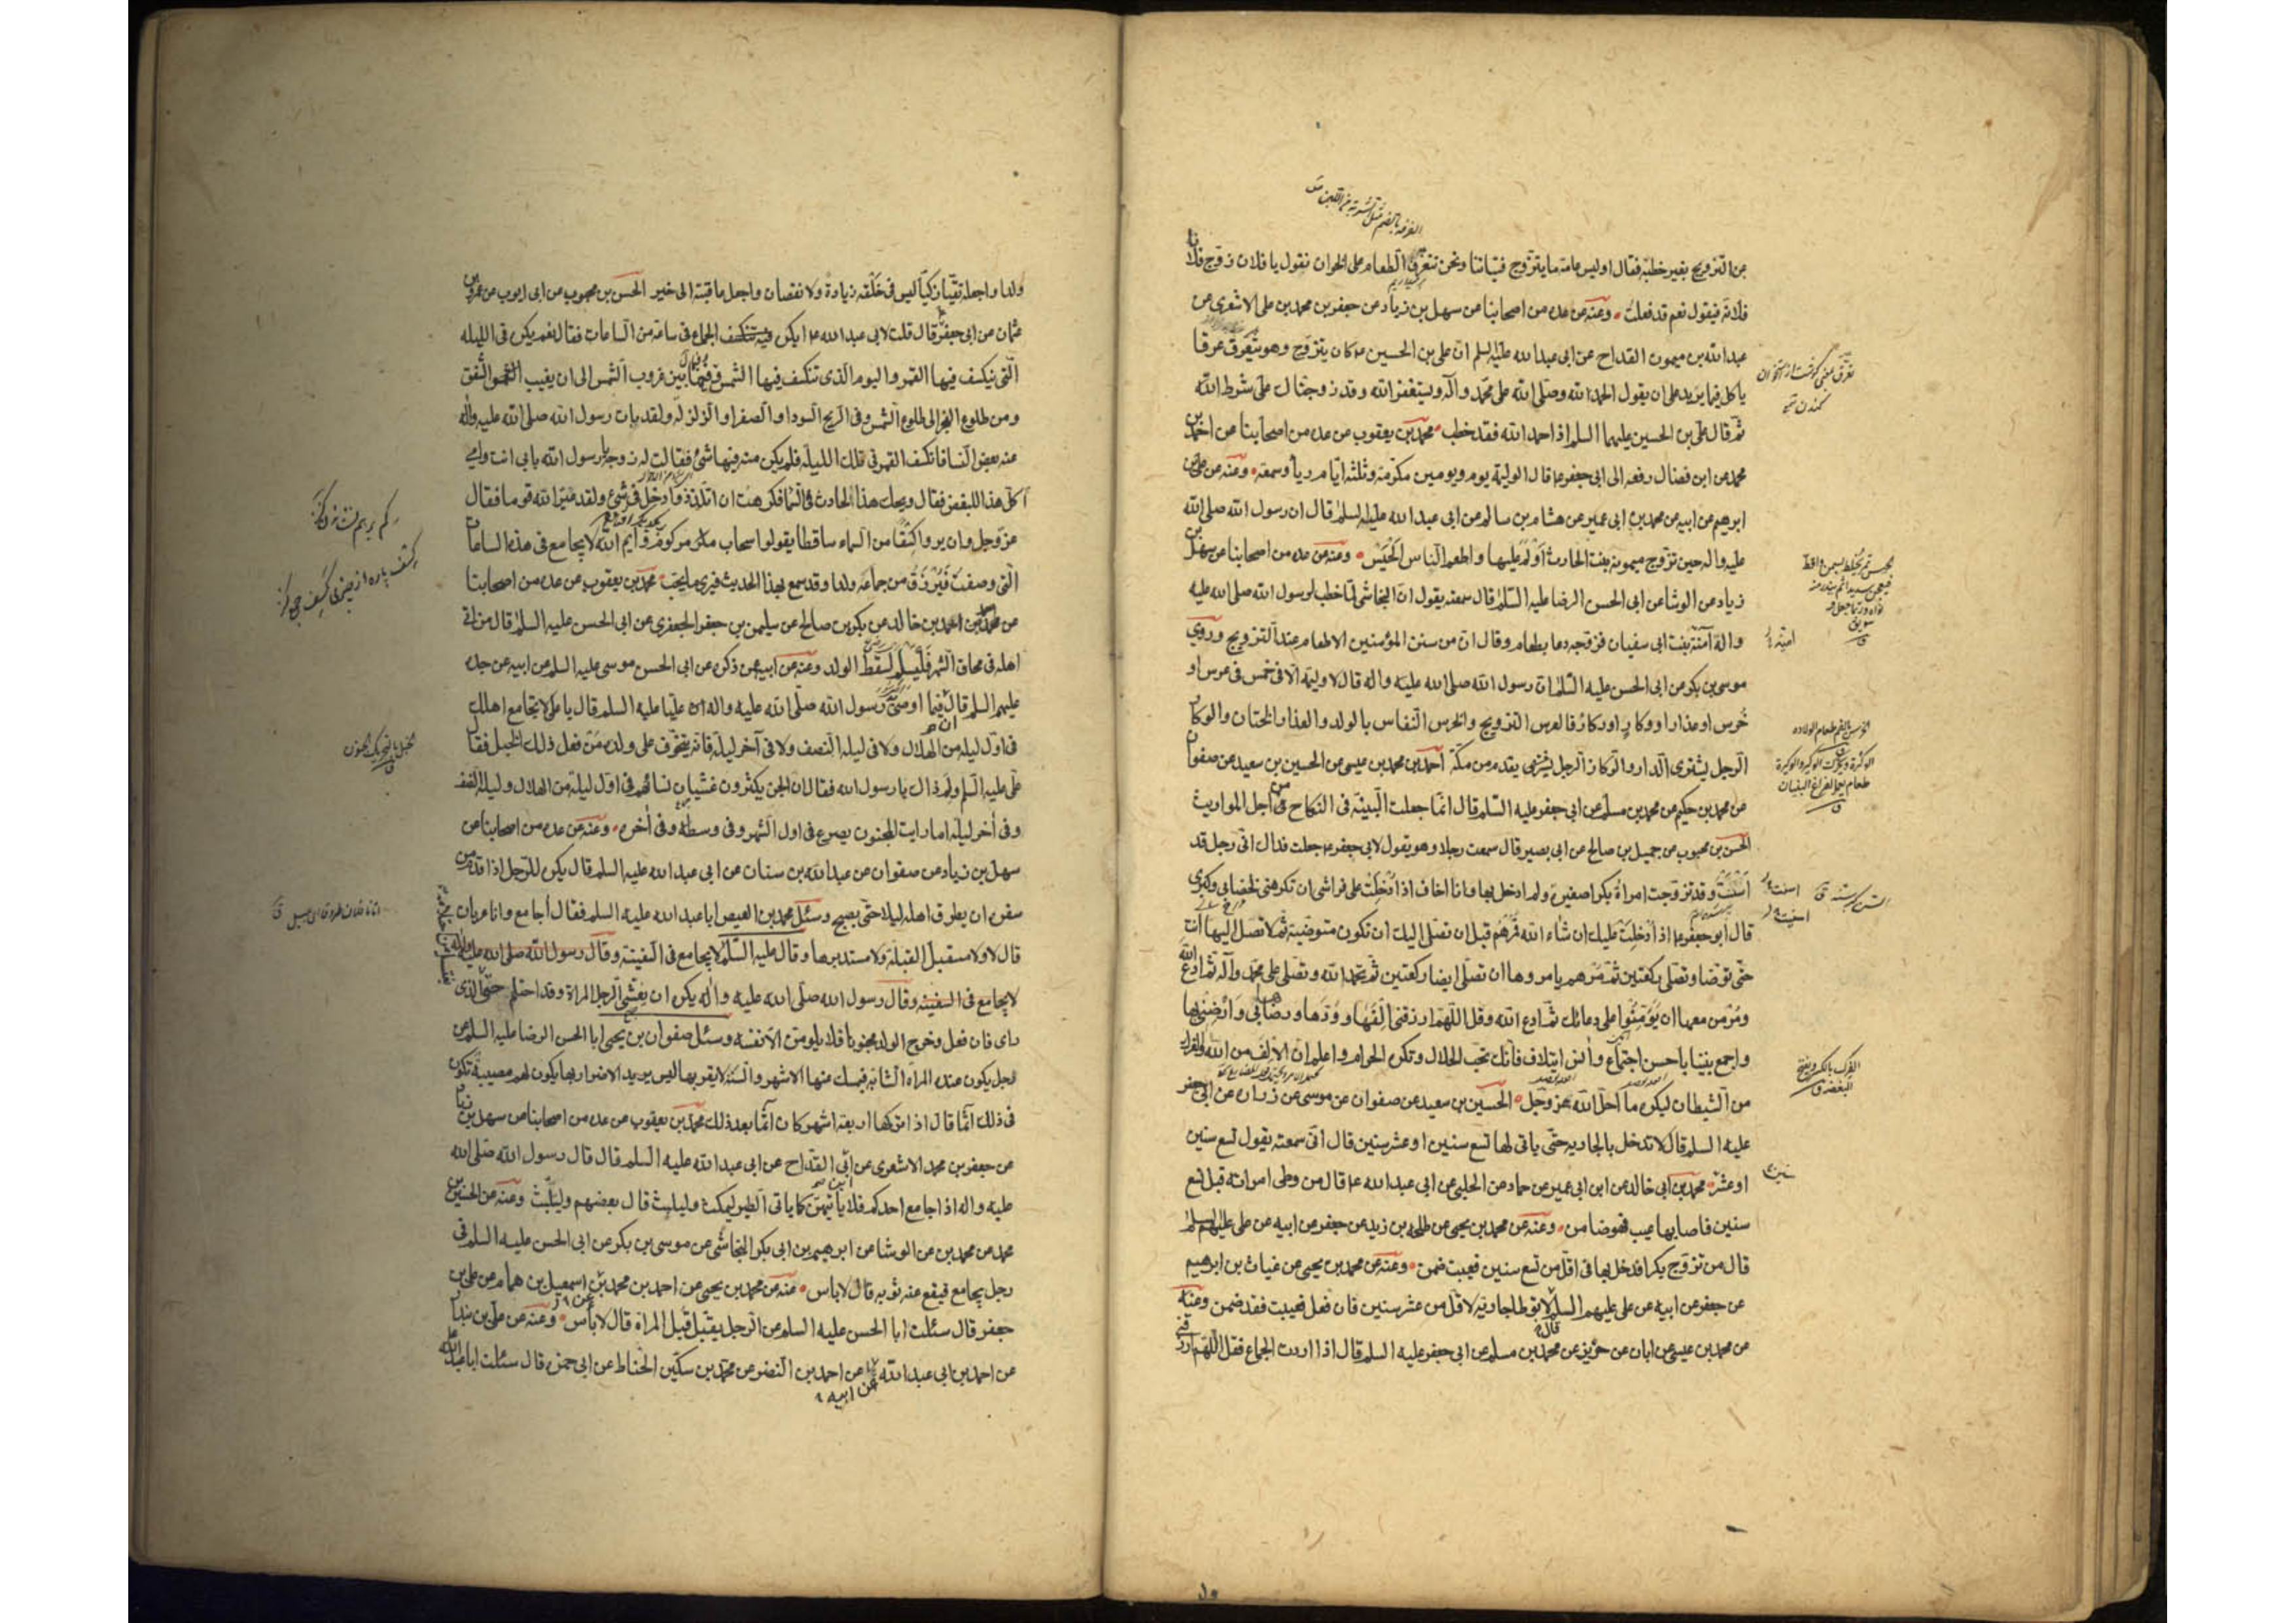 من التزويج بغير خطبة فقال اوليس عامة ما يتزوج فتياننا ونحن نتعرق الطعام على الخوان نقول يا فلان زوج فلانا
فلانة فيقول نعم قد فعلت وعنه عن عدة من اصحابنا عن سهل بن زياد عن جعفر بن محمد بن على الاشعرى عن
عبد الله بن ميمون القداح عن ابى عبد الله عليه السلم ان على بن الحسين ع كان يتزوج وهو يتعرق عرقا
ياكل فما يزيد على ان يقول الحمد الله وصلى الله على محمد وآله ويستغفر الله وقد زوجناك على شرط الله
ثم قال على بن الحسين عليهما السلم اذا حمد الله فقد خطب محمد بن يعقوب عن عدة من اصحابنا عن احمد بن
محمد عن ابن فضال رفعه الى ابى جعفر ع قال الوليمة يوم ويومين مكرمة وثلثة ايام ريأ وسمعة وعنه عن على بن
ابرهيم عن ابيه عن محمد بن ابى عمير عن هشام بن سالم عن ابى عبد الله عليه السلم قال ان رسول الله صلى الله
عليه واله حين تزوج ميمونة بنت الحارث اولم عليها واطعم الناس الحيس وعنه عن عدة من اصحابنا عن سهل بن
زياد عن الوشا عن ابى الحسن الرضا عليه السلم قال سمعته يقول ان النجاشى لما خطب لرسول الله صلى الله عليه
واله آمنة بنت ابى سفيان فزوجه دعا بطعام وقال ان من سنن المؤسنين الاطعام عند التزويج وروى
موسى بن بكر عن ابى الحسن عليه السلم ان رسول الله صلى الله عليه واله قال لا وليمة الا فى خمس فى عرس او
خرس او عذار او وكار او ركاز فالعرس التزويج والخرس النفاس بالولد والعذار الختان والوكار
الرجل يشترى الدار والركاز الرجل يقدم من مكة احمد بن محمد بن عيسى عن الحسين بن سعيد عن صفوان
عن محمد بن حكيم عن محمد بن مسلم عن ابى جعفر عليه السلم قال انما جعلت البينة فى النكاح من اجل المواريث
الحسن بن محبوب عن جميل بن صالح عن ابى بصير قال سمعت رجلا وهو يقول لابى جعفر ع جعلت فداك انى رجل قد
اسننت وقد تزوجت امرأة بكرا صغيرة ولم ادخل بها وانا اخاف اذا ادخلت على فراشى ان تكرهنى لخضابى وكبرى
قال ابو جعفر ع اذا ادخلت عليك ان شاء الله فمرهم قبل ان تصل اليك ان تكون متوضية ثم لا تصل اليها انت
حتى توضا وتصلى ركعتين ثم مرهم يامروها ان تصلى ايضا ركعتين ثم تحمد الله وتصلى على محمد وآله ثم ادع الله
ومر من معها ان يؤمنوا على دعائك ثم ادع الله وقل اللهم ارزقنى الفها وودها ورضاها بى وارضنى بها
واجمع بيننا باحسن اجتماع وانس ائتلاف فانك تحب الحلال وتكره الحرام واعلم ان الالف من الله والفرك
من الشيطان ليكره ما احل الله عز وجل الحسين بن سعيد عن صفوان عن موسى عن زرارة عن ابى جعفر
عليه السلم قال لا تدخل بالجارية حتى ياتى لها تسع سنين او عشر سنين قال انى سمعته يقول تسع سنين
او عشر محمد بن ابى خالد عن ابن ابى عمير عن حماد عن الحلبى عن ابى عبد الله ع قال من وطى امراته قبل تسع
سنين فاصابها عيب فهو ضامن وعنه عن محمد بن يحيى عن طلحة بن زيد عن جعفر عن ابيه عن على عليهم السلم
قال من تزوج بكرا فدخل بها فى اقل من تسع سنين فعيبت ضمن وعنه عن محمد بن يحيى عن غياث بن ابرهيم
عن جعفر عن ابيه عن على عليهم السلم لا توطا جارية لاقل من عشر سنين فان فعل فعيبت فقد ضمن وعنه
عن محمد بن عيسى عن ابان عن حريز عن محمد بن مسلم عن ابى جعفر عليه السلم قال اذا اردت الجماع فقل اللهم ارزقنى
تعرق يعنى گوشت از استخوان
الخرس بالضم طعام الولادة
الفرك بالكسر ويفتح
البغضة ق
سنين
ولدا واجعله تقيا زكيا ليس فى خلقه زيادة ولا نقصان واجعل عاقبته الى خير الحسن بن محبوب عن ابى ايوب عن عمرو بن
عثمان عن ابى جعفر قال قلت لابى عبد الله ع ايكره الجماع فى ساعة من الساعات فقال نعم يكره فى الليلة
التى ينكسف فيها القمر واليوم الذى تنكسف فيها الشمس وفيما بين غروب الشمس الى ان يغيب الشفق
ومن طلوع الفجر الى طلوع الشمس وفى الريح السودا والصفرا والزلزلة ولقد بات رسول الله صلى الله عليه واله
عند بعض النسا فانكسف القمر فى تلك الليلة فلم يكن منه فيها شئ فقالت له زوجه يا رسول الله بابى انت وامى
اكل هذا للبغض فقال ويحك هذا الحادث فى السما فكرهت ان اتلذذ وادخل فى شئ ولقد عير الله قوما فقال
عز وجل وان يروا كسفا من السماء ساقطا يقولوا سحاب مركوم وايم الله لا يجامع فى هذه الساعات
التى وصفت فيرزق من جماعه ولدا وقد سمع بهذا الحديث فيرى ما يحب محمد بن يعقوب عن عدة من اصحابنا
عن احمد بن خالد عن بكر بن صالح عن سليمن بن جعفر الجعفرى عن ابى الحسن عليه السلم قال من اتى
اهله فى محاق الشهر فليسلم لسقط الولد وعنه عن ابيه عمن ذكره عن ابى الحسن موسى عليه السلم عن ابيه عن جده
عليهم السلم قال فيما اوصى رسول الله صلى الله عليه واله عليا عليه السلم قال يا على لا تجامع اهلك
فى اول ليلة من الهلال ولا فى ليلة النصف ولا فى آخر ليلة فانه يتخوف على ولد من فعل ذلك الخبل فقال
على عليه السلم ولم ذاك يا رسول الله فقال ان الجن يكثرون غشيان نسائهم فى اول ليلة من الهلال وليلة النصف
وفى آخر ليلة اما رايت المجنون يصرع فى اول الشهر وفى وسطه وفى آخره وعنه عن عدة من اصحابنا عن
سهل بن زياد عن صفوان عن عبد الله بن سنان عن ابى عبد الله عليه السلم قال يكره للرجل اذا قدم من
سفره ان يطرق اهله ليلا حتى يصبح وسئل محمد بن العيص ابا عبد الله عليه السلم فقال أجامع وانا عريان
قال لا ولا مستقبل القبلة ولا مستدبرها وقال عليه السلم لا يجامع فى السفينة وقال رسول الله صلى الله عليه واله
لا يجامع فى السفينة وقال رسول الله صلى الله عليه واله يكره ان يغشى الرجل المراة وقد احتلم حتى الذى
راى فان فعل وخرج الولد مجنونا فلا يلومن الا نفسه وسئل صفوان بن يحيى ابا الحسن الرضا عليه السلم عن
رجل يكون عنده المراة الشابة فيمسك عنها الاشهر والسنة لا يقربها ليس يريد الاضرار بها يكون لهم مصيبة يكون
فى ذلك آثما قال اذا تركها اربعة اشهر كان آثما بعد ذلك محمد بن يعقوب عن عدة من اصحابنا عن سهل بن زياد
عن جعفر بن محمد الاشعرى عن القداح عن ابى عبد الله عليه السلم قال قال رسول الله صلى الله
عليه واله اذا جامع احدكم فلا ياتيهن كما ياتى الطير ليمكث وليلبث قال بعضهم وليتلبث وعنه عن الحسين بن
محمد عن محمد بن عن الوشا عن ابرهيم بن ابى بكر النجاشى عن موسى بن بكر عن ابى الحسن عليه السلم فى
رجل يجامع فيقع عنه ثوبه قال لا باس عنه عن محمد بن يحيى عن احمد بن محمد عن اسمعيل بن همام عن على بن
جعفر قال سئلت ابا الحسن عليه السلم عن الرجل يقبل قبل المراة قال لا باس وعنه عن على بن بندار
عن احمد بن ابى عبد الله عن احمد بن النضر عن محمد بن سكين الحناط عن ابى حمزة قال سئلت ابا عبد الله
عن ابيه